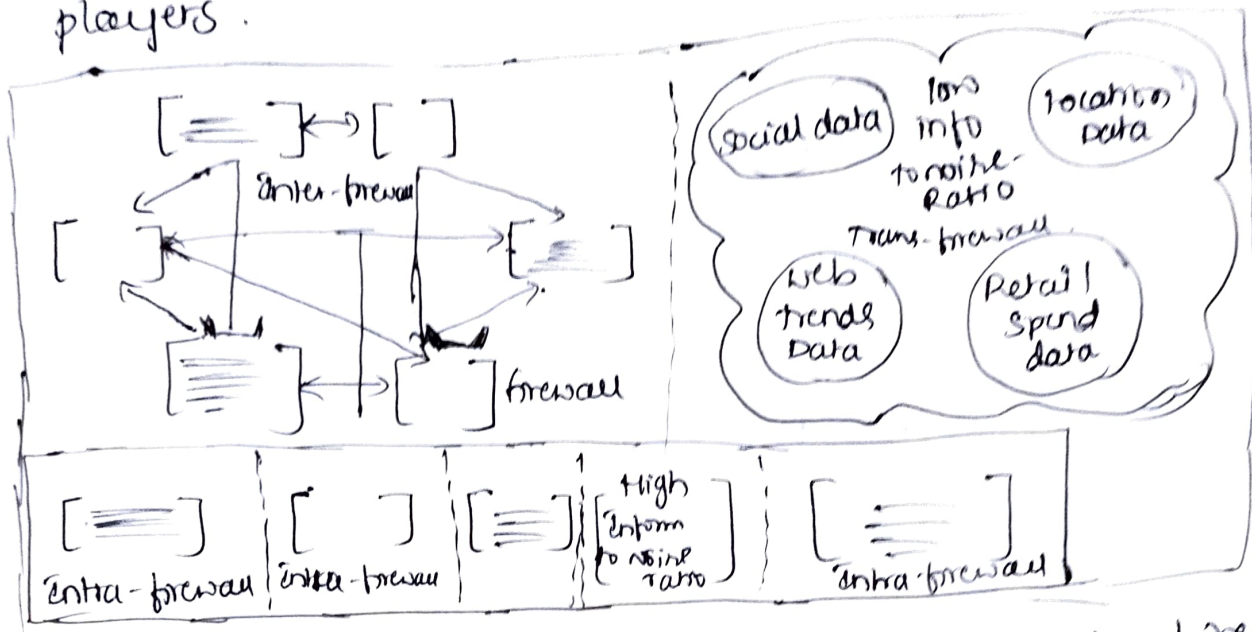 players.
Inter-firewall
firewall
social data
low
info
to noise-
Ratio
location
Data
Trans-firewall
Web
trends
Data
Retail
spend
data
Intra-firewall
Intra-firewall
High
Inform
to noise
ratio
Intra-firewall